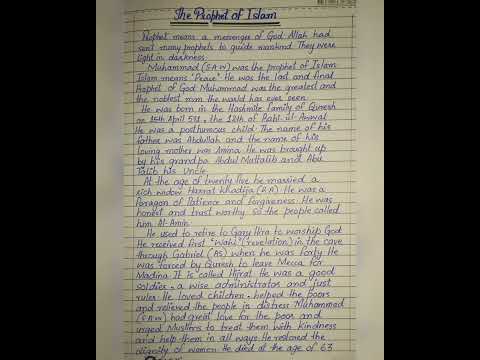 The Prophet of Islam
Prophet means a messenger of God. Allah had
sent many prophets to guide mankind. They were
light in darkness.
Muhammad (S.A.W) was the prophet of Islam.
Islam means "Peace". He was the last and final
Prophet of God. Muhammad was the greatest and
the noblest man the world has ever seen.
He was born in the Hashmite family of Quresh
on 15th April 571, the 12th of Rabi-ul-Awwal.
He was a posthumous child. The name of his
father was Abdullah and the name of his
loving mother was Amina. He was brought up
by his grandpa Abdul Muttalib and Abu
Talib his Uncle.
At the age of twenty five be married a
rich widow Hazrat Khadija (R.A). He was a
Paragon of Patience and forgiveness. He was
honest and trust worthy. so the people called
him Al-Amin.
He used to retire to Gary Hira to worship God
He received first "Wahi" (revelation) in the cave
through Gabriel (AS) when he was forty. He
was forced by Quresh to leave Mecca for
Madina. It is called Hijrat. He was a good
soldier, a wise administrator and just
ruler. He loved children, helped the poors
and relieved the people in distress. Muhammad
(S.A.W) had great love for the poor and
urged Muslims to treat them with kindness
and help them in all ways. He restored the
dignity of women. He died at the age of 63